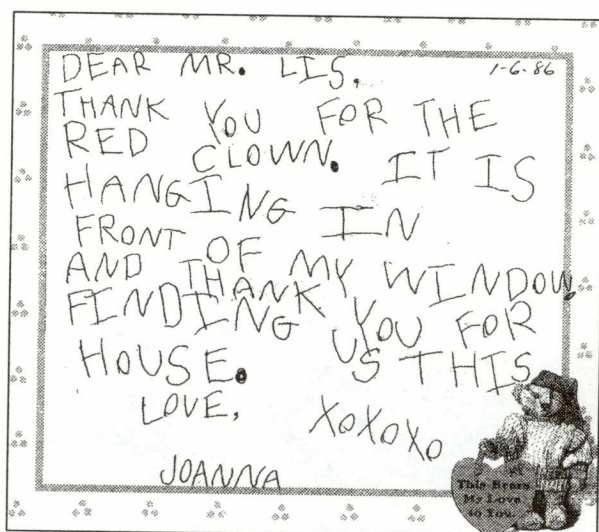 DEAR MR. LIS, 1-6-86
THANK YOU FOR THE
RED CLOWN. IT IS
HANGING IN
FRONT OF MY WINDOW.
AND THANK YOU FOR
FINDING US THIS
HOUSE.
LOVE, XOXOXO
JOANNA
This Bears
My Love
to You.